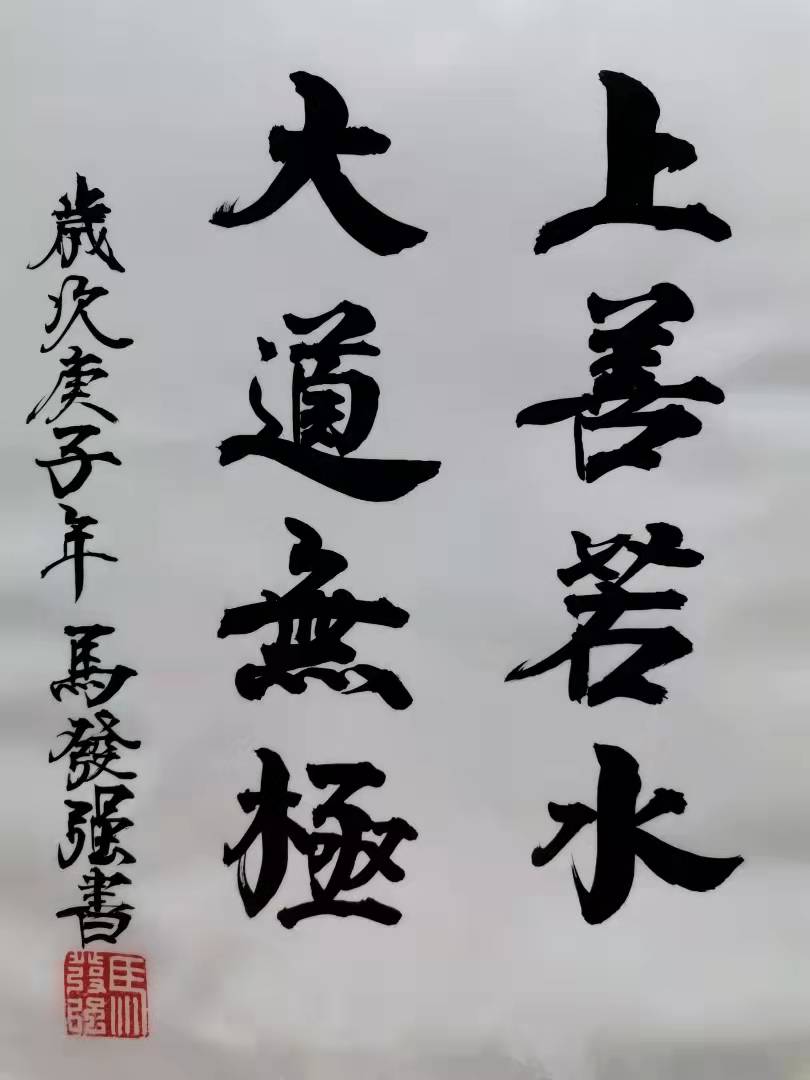 上善若水
大道無極
歲次庚子年 馬發强書
馬發强